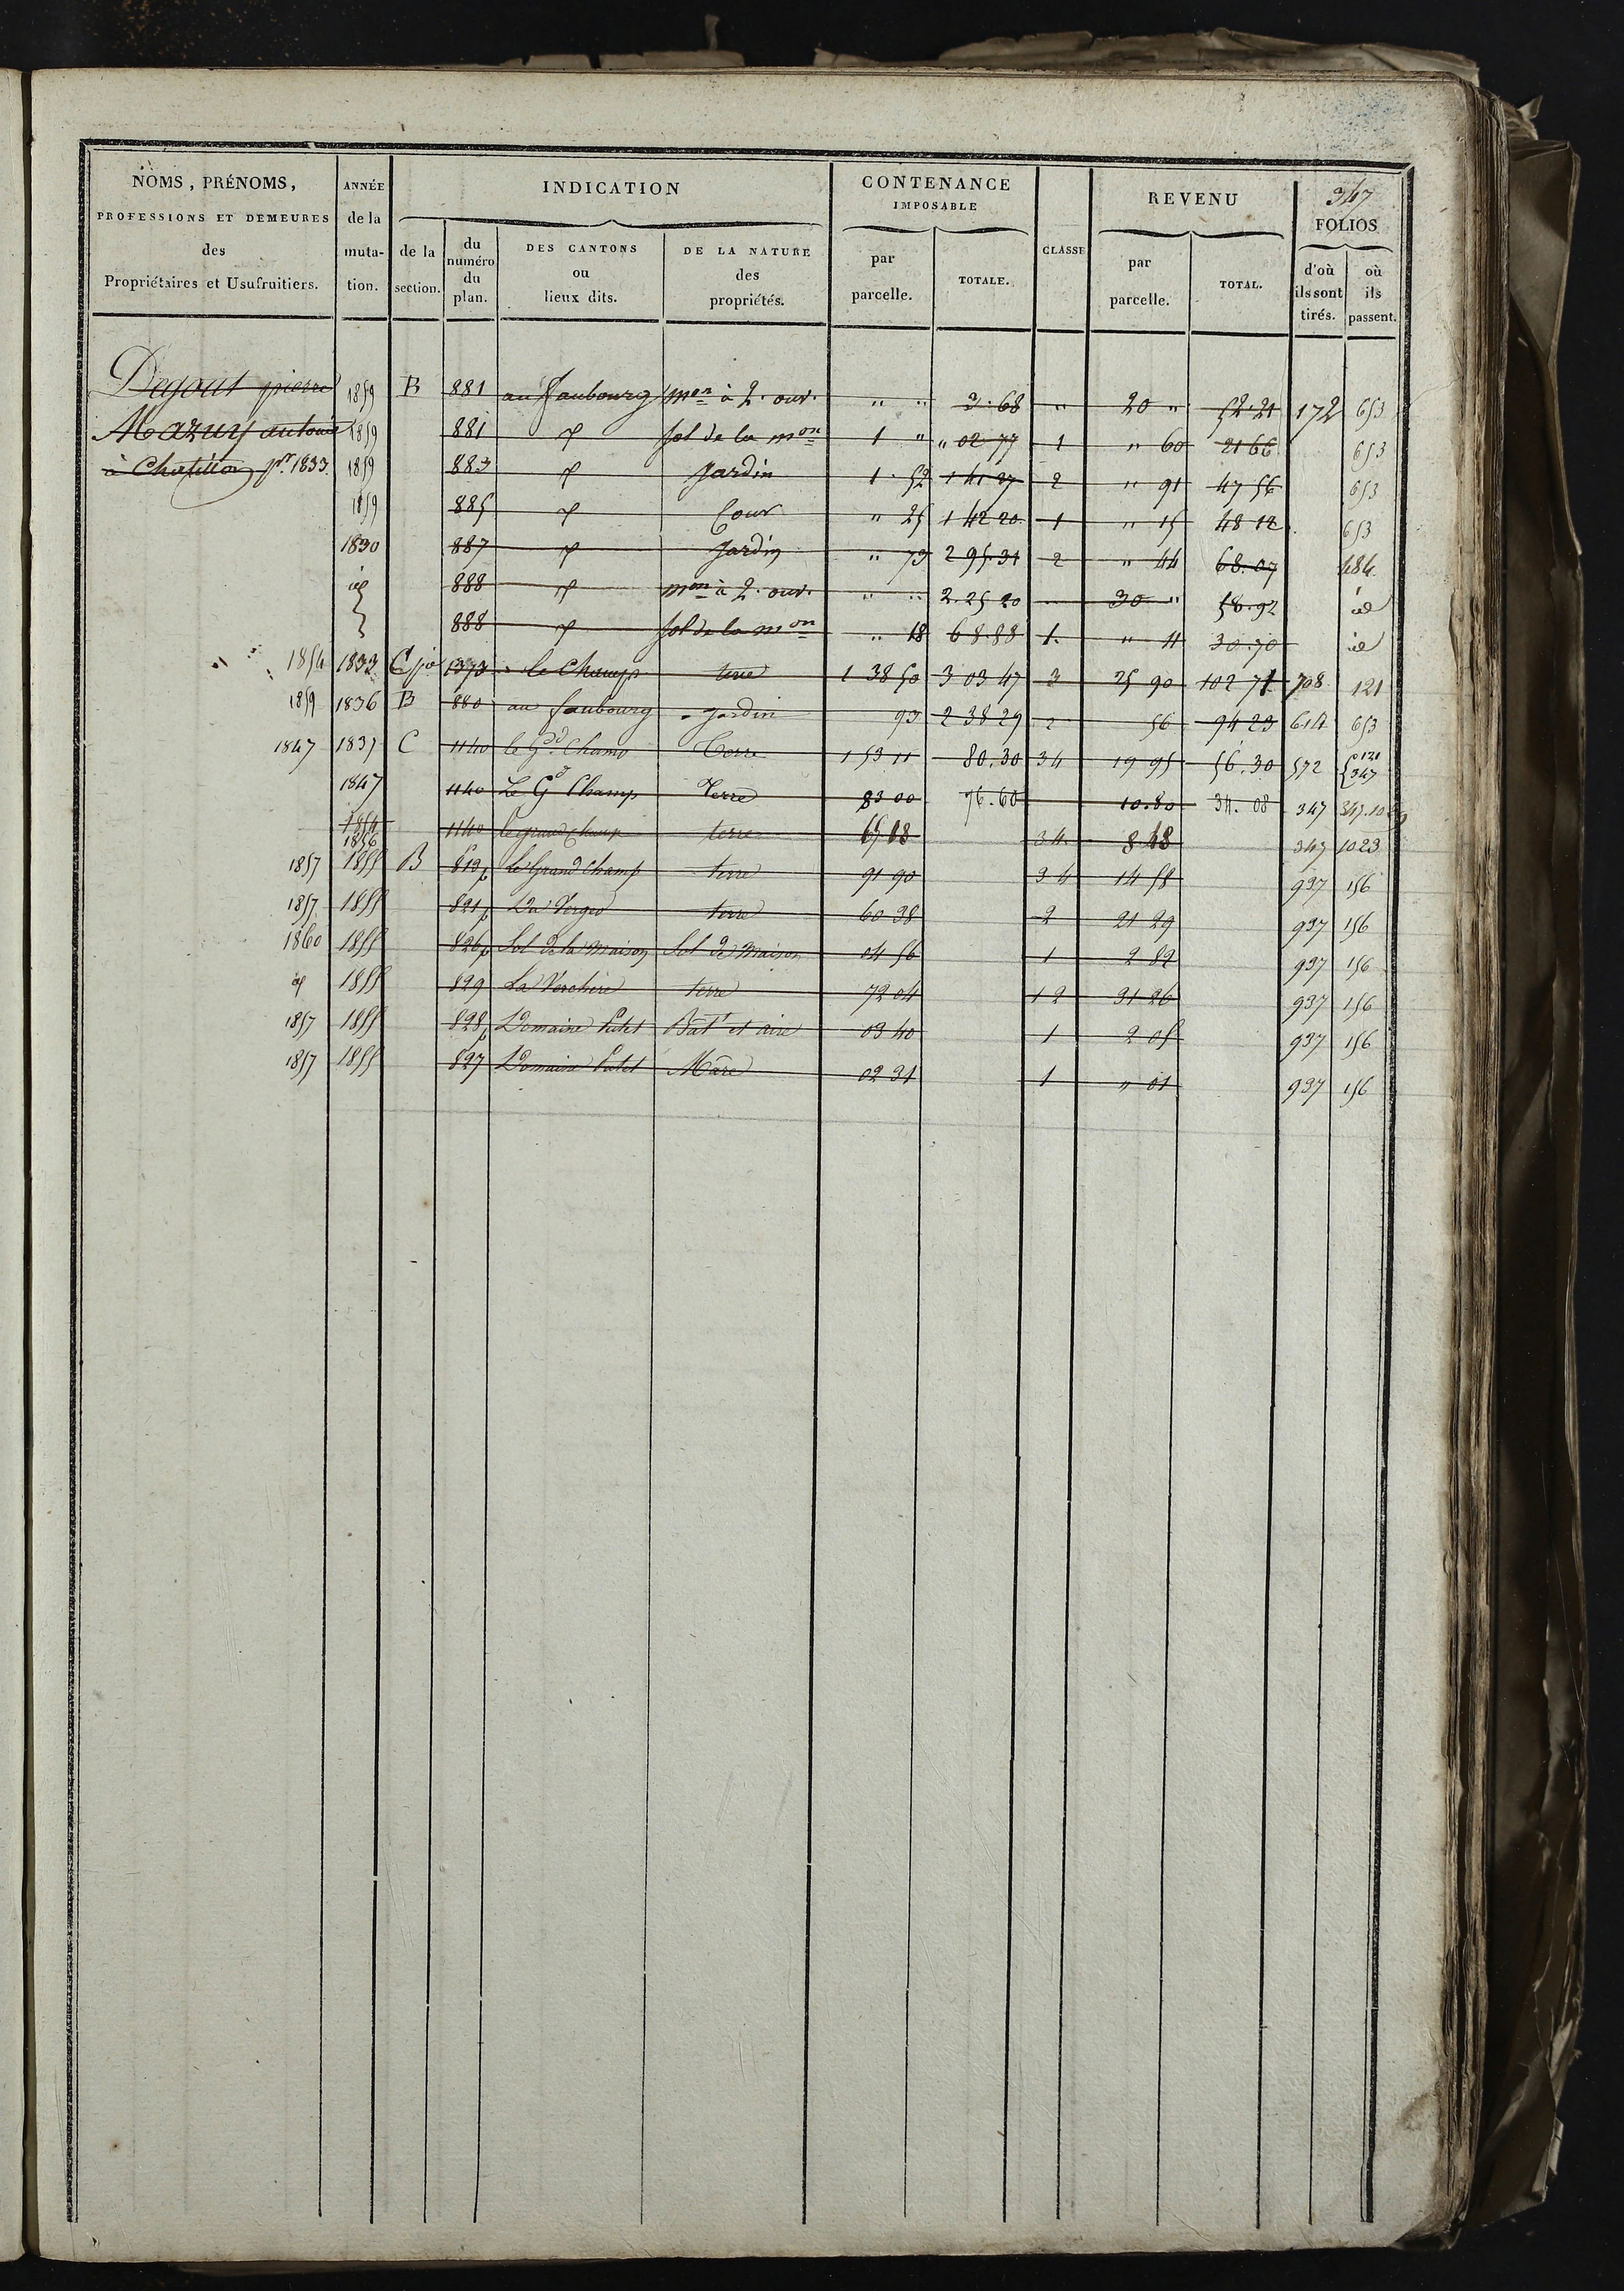 347
NOMS, PRÉNOMS,
PROFESSIONS ET DEMEURES
des
Propriétaires et Usufruitiers.
ANNÉE
de la
muta-
tion.
INDICATION
de la
section.
du
numéro
du
plan.
DES CANTONS
ou
lieux dits.
DE LA NATURE
des
propriétés.
CONTENANCE
IMPOSABLE
par
parcelle.
TOTALE.
CLASSE
REVENU
par
parcelle.
TOTAL.
FOLIOS
d'où
ils sont
tirés.
où
ils
passent.
Degout pierre 1859 B 881 au faubourg mon à 2. ouv. " " 3.68 " 20 " 52.21 172 653
Mazuy antoine 1859 881 sol de la mon 1 " " 02 77 1 " 60 21 66 653
à Chatillon pr. 1833. 1859 883 Jardin 1.52 1 41 27 2 " 91 47 56 653
1859 885 Cour " 25 1 42 20 1 " 15 48 12 653
1830 887 Jardin " 79 2 95.31 2 " 44 68.07 484.
id 888 mon à 2. ouv. " " 2.25 20 30 " 58.92 id
888 sol de la mon " 18 68.88 1. " 11 30.70 id
1854 1833 C 1373 le Champ terre 1 38 50 3 03 47 3 25 90 102 71 708 121
1859 1836 B 880 au faubourg Jardin 93 2 38 29 2 56 94 23 614 653
1847 1837 C 1140 le Gd. Champ Terre 1 53 11 80.30 34 19 95 56.30 572 121 347
1847 1140 Le Gd Champ Terre 83 00 76.60 10.80 34.08 347
1854 1856 1140 le grand champ terre 65 18 34 8 48 347 1023
1857 1855 B 819p Le Grand Champ terre 91 90 34 14 58 937 156
1857 1855 821p Du Verger terre 60 38 2 21 29 937 156
1860 1855 826p Sol de la maison Sol de maison 04 56 1 2 82 937 156
id 1855 829 La Verchère terre 72 04 12 31 26 937 156
1857 1855 828p Domaine Putet Batt et aire 03 40 1 2 05 937 156
1857 1855 827 Domaine Putet Mare 02 31 1 " 01 937 156